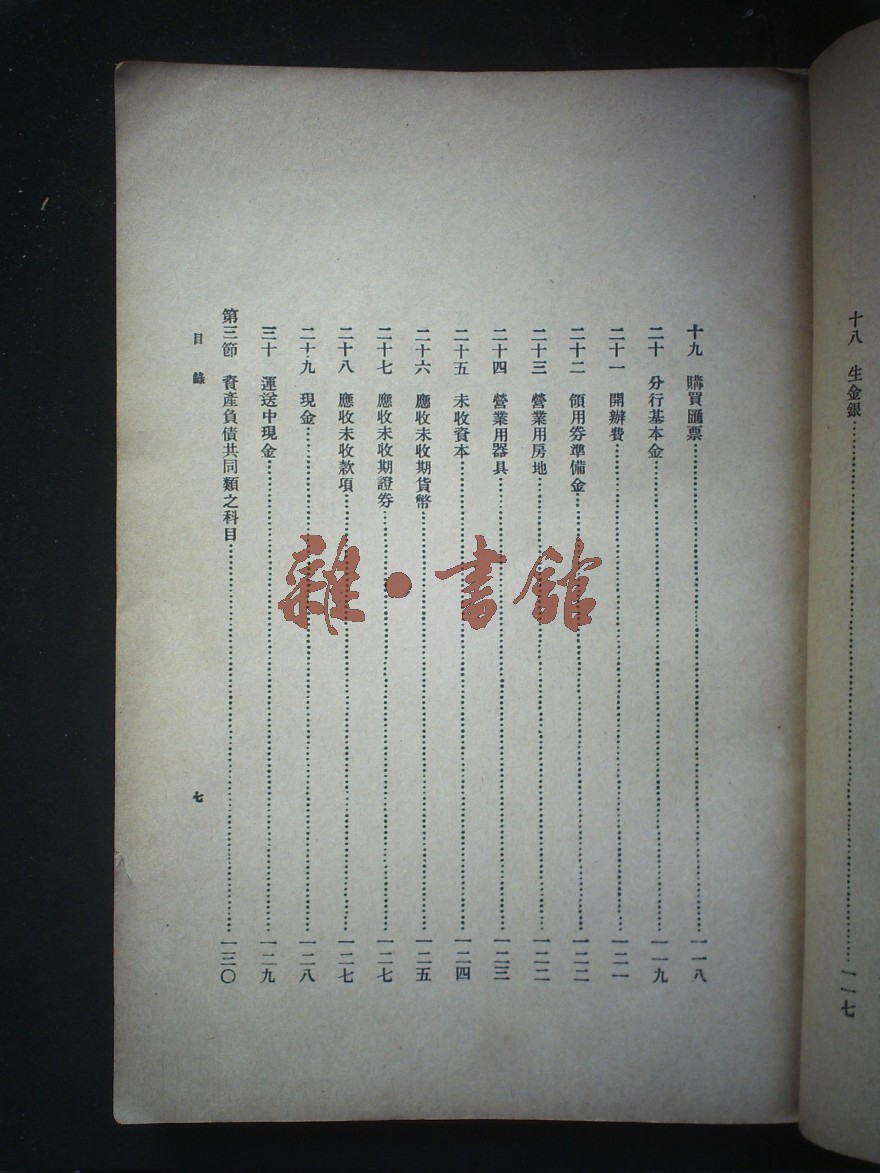 十八　生金銀……一一七
十九　購買匯票……一一八
二十　分行基本金……一一九
二十一　開辦費……一二一
二十二　領用券準備金……一二二
二十三　營業用房地……一二二
二十四　營業用器具……一二三
二十五　未收資本……一二四
二十六　應收未收期貨幣……一二五
二十七　應收未收期證券……一二七
二十八　應收未收款項……一二七
二十九　現金……一二八
三十　運送中現金……一二九
第三節　資產負債共同類之科目……一三〇
目錄
七
雜·書館